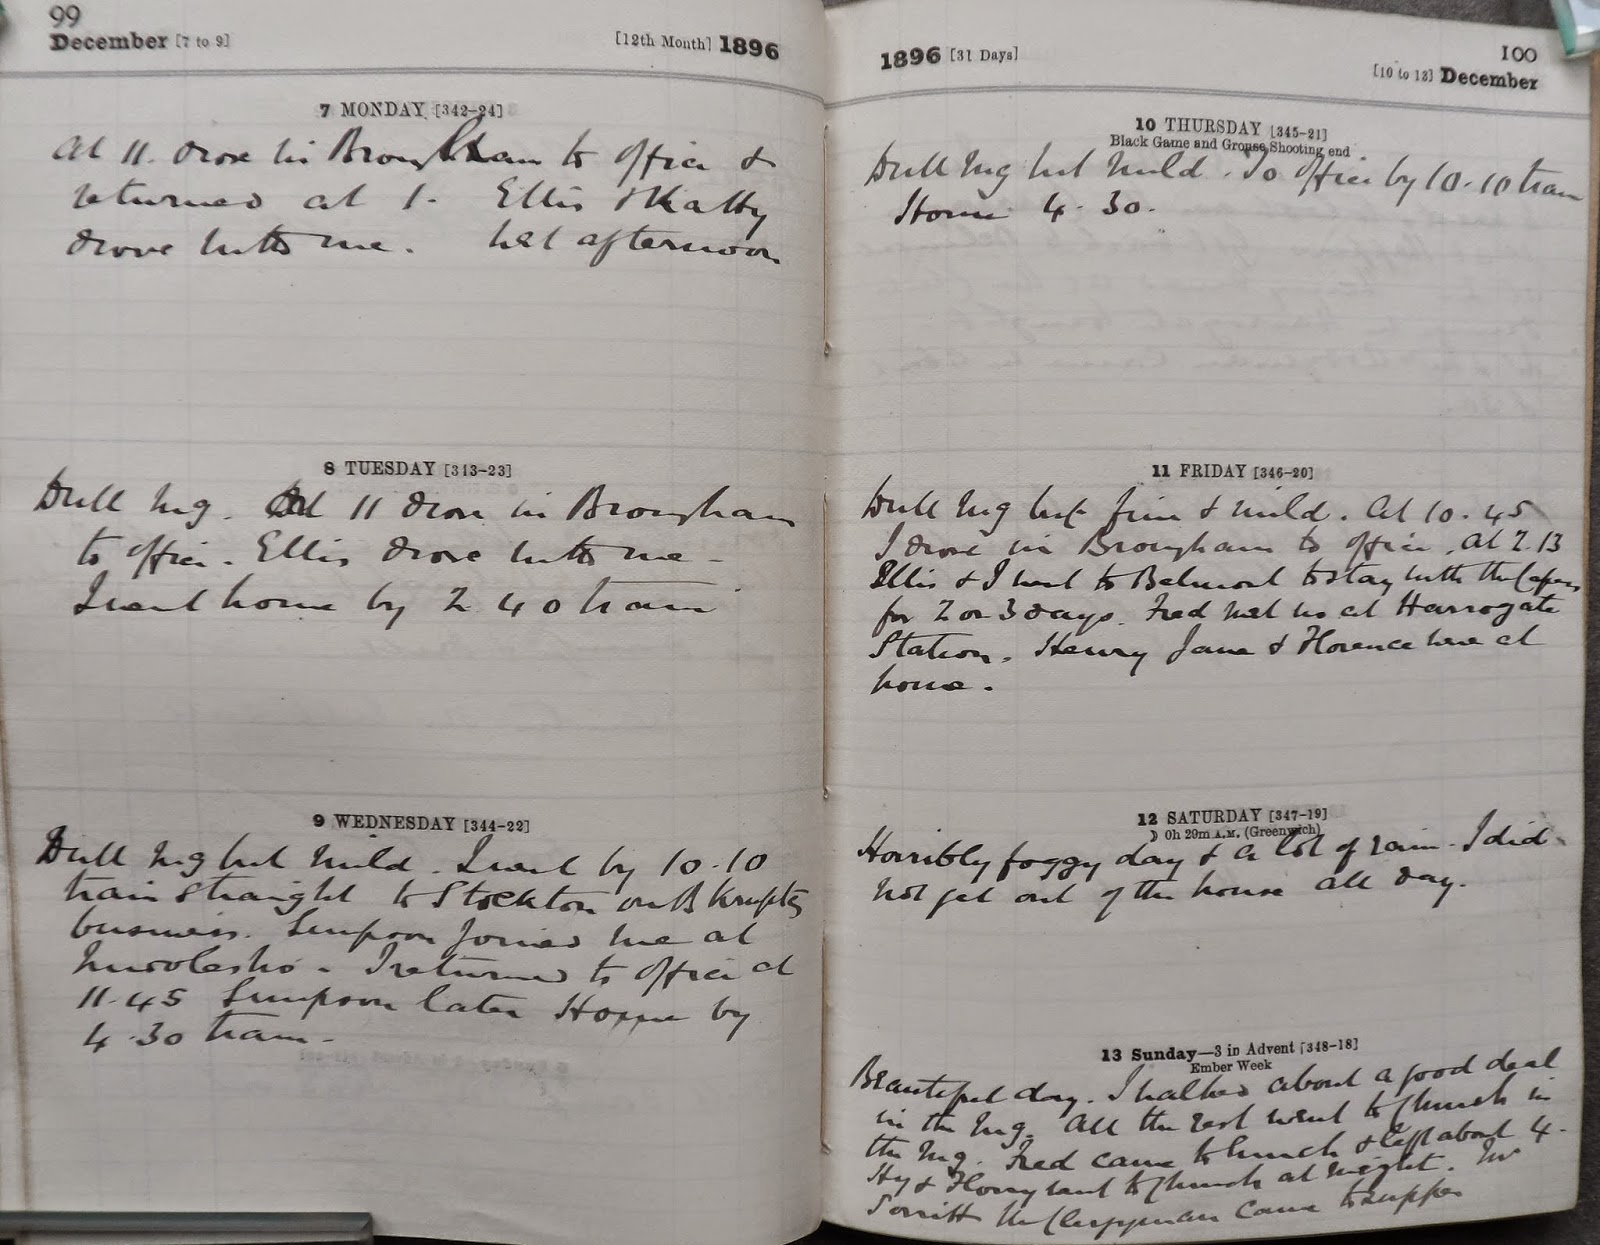 99
December [7 to 9]
[12th Month] 1896
7 MONDAY [342-24]
At 11. drove in Brougham to office &
returned at 1. Ellis & Katty
drove with me. Wet afternoon
8 TUESDAY [343-23]
Dull Mg. At 11 drove in Brougham
to office. Ellis drove with me -
I went home by 2 40 tram
9 WEDNESDAY [344-22]
Dull Mg but mild. I went by 10.10
train straight to Stockton on Bkruptcy
business. Simpson joined me at
I returned to office at
11.45 Simpson later Home by
4.30 tram.
1896 [31 Days]
100
[10 to 13] December
10 THURSDAY [345-21]
Black Game and Grouse Shooting end
Dull Mg but mild. To office by 10.10 tram
Home 4.30.
11 FRIDAY [346-20]
Dull Mg but fine & mild. At 10.45
I drove in Brougham to office. At 2.13
Ellis & I went to Belmont to stay with the
for 2 or 3 days. Fred met us at Harrogate
Station. Henry Jane & Florence were at
home.
12 SATURDAY [347-19]
☽ 0h 29m A.M. (Greenwich)
Horribly foggy day & a lot of rain. I did
not get out of the house all day.
13 Sunday—3 in Advent [348-18]
Ember Week
Beautiful day. I walked about a good deal
in the Mg. All the rest went to Church in
the Mg. Fred came to lunch & left about 4.
Hy & Florry went to Church at night. Mr
the Clergyman came to supper